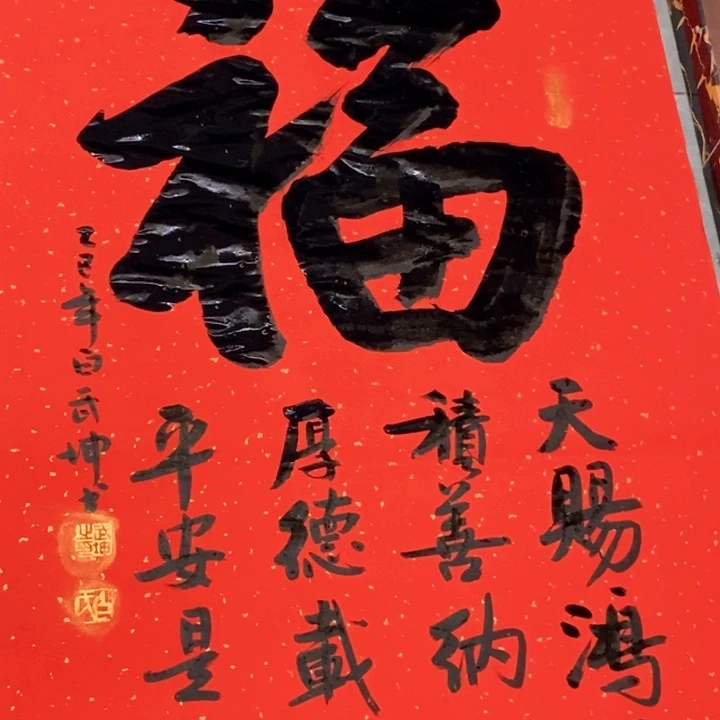 福
天賜鴻
積善納
厚德載
平安是
乙巳年白武坤书